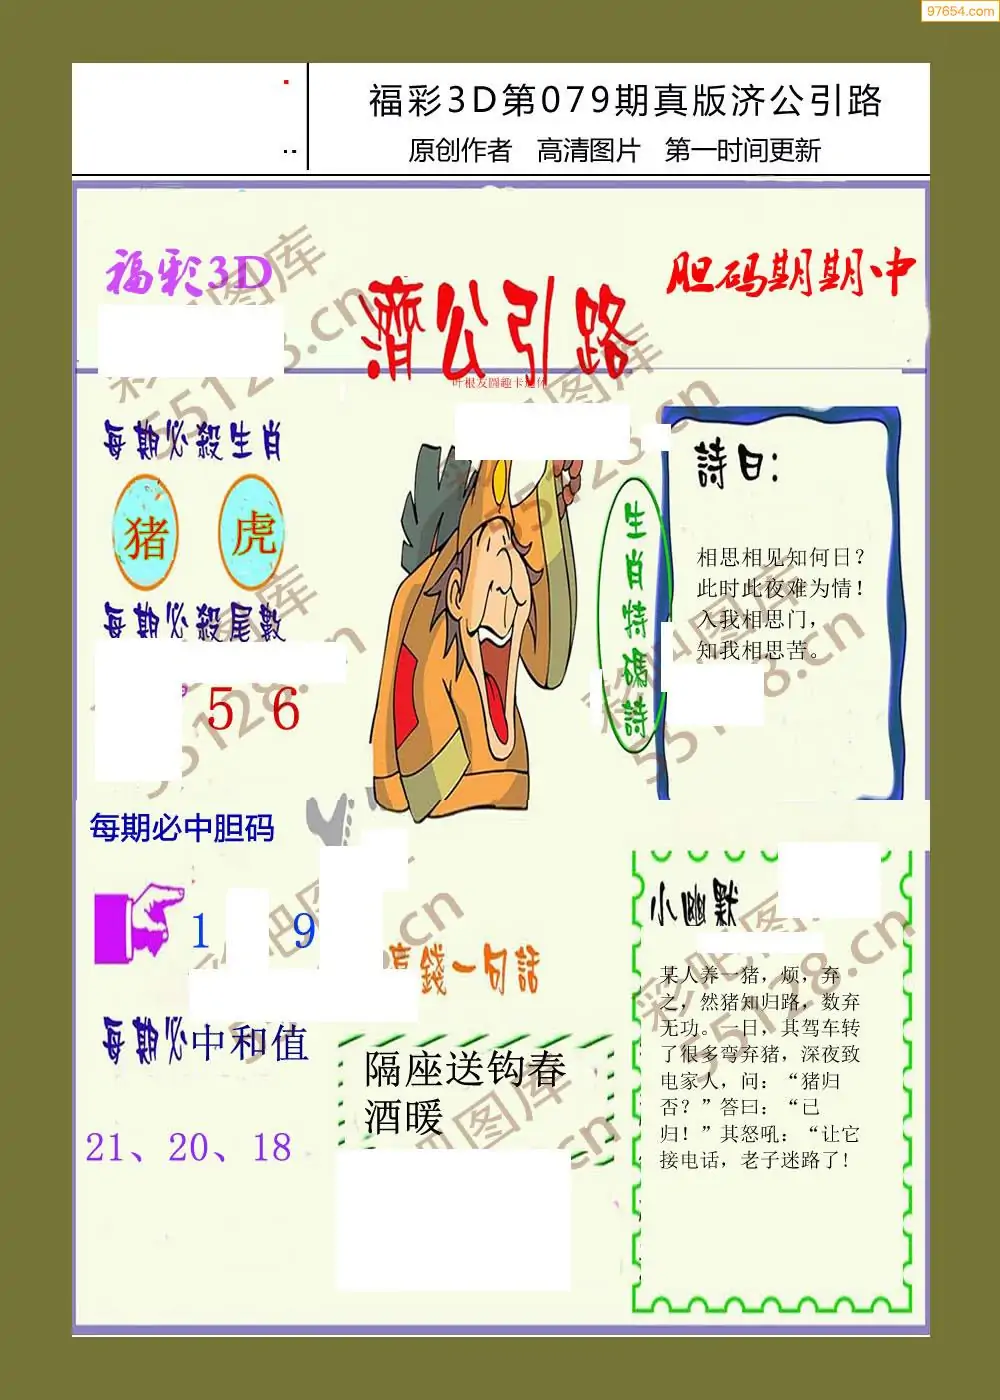 97654.com
福彩3D第079期真版济公引路
原创作者 高清图片 第一时间更新
福彩3D
胆码期期中
濟公引路
每期必殺生肖
猪 虎
每期必殺尾數
5 6
生肖特碼詩
詩曰:
相思相见知何日?
此时此夜难为情!
入我相思门,
知我相思苦。
每期必中胆码
1 9
每期必中和值
21、20、18
錢一句話
隔座送钩春
酒暖
小幽默
某人养一猪,烦,弃
之,然猪知归路,数弃
无功。一日,其驾车转
了很多弯弃猪,深夜致
电家人,问:“猪归
否?”答曰:“已
归!”其怒吼:“让它
接电话,老子迷路了!
彩吧图库
55128.cn